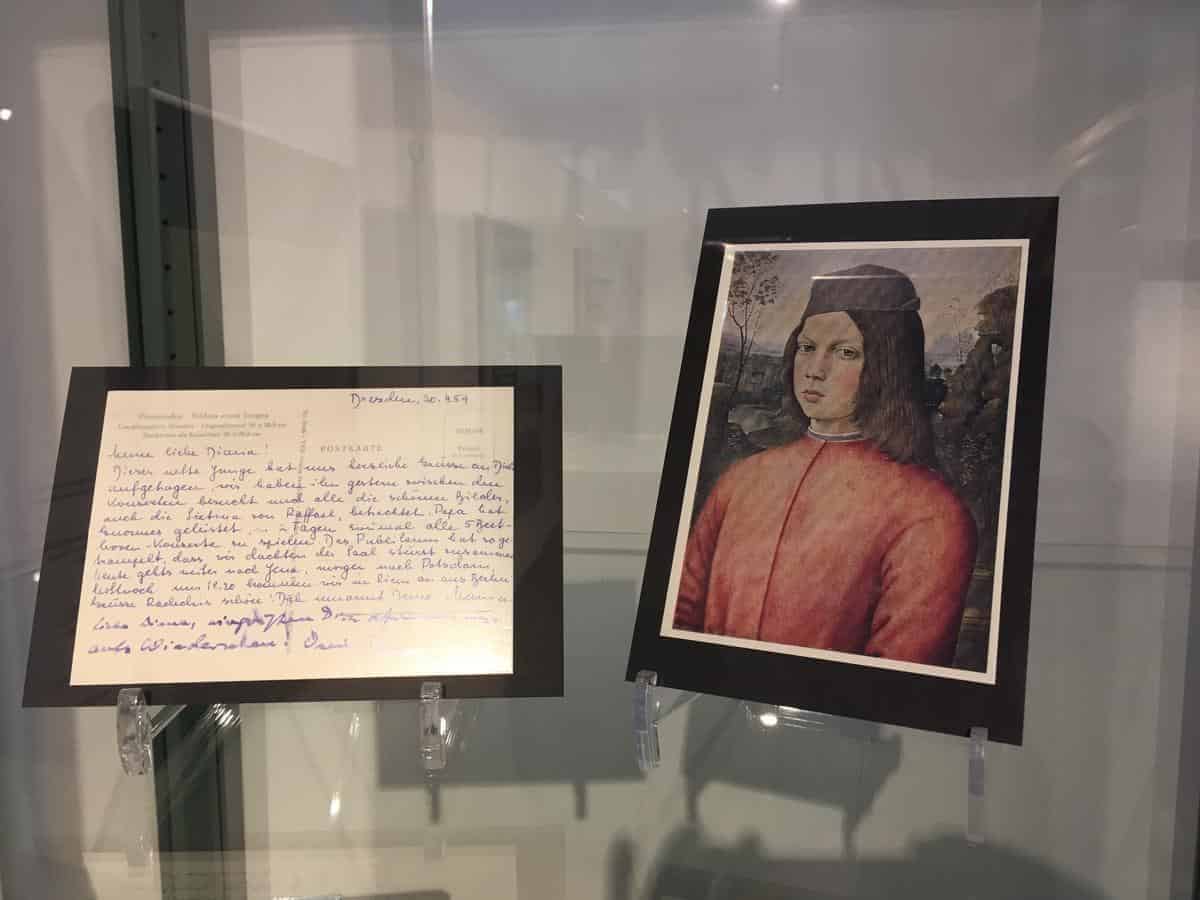 Dresden, 20.9.59
Pinturicchio Bildnis eines Knaben
Gemäldegalerie Dresden
POSTKARTE
Meine liebe Diana!
Dieses nette Junge hat uns herzliche Grüsse an Dich
aufgetragen, wir haben ihn gestern zwischen den
Konzerten besucht und alle die schönen Bilder,
auch die Sixtina von Raffael, betrachtet. Papa hat
Enormes geleistet, in 2 Tagen zweimal alle 5 Beet-
hoven-Konzerte zu spielen. Das Publikum hat so ge-
trampelt, dass wir dachten der Saal stürzt zusammen
heute gehts weiter nach Jena, morgen nach Potsdam,
Mittwoch um 19.20 kommen wir in Wien an aus Berlin
Grüsse schön! Dich umarmt Deine Mama
Liebe Diana,
aufs Wiedersehen!